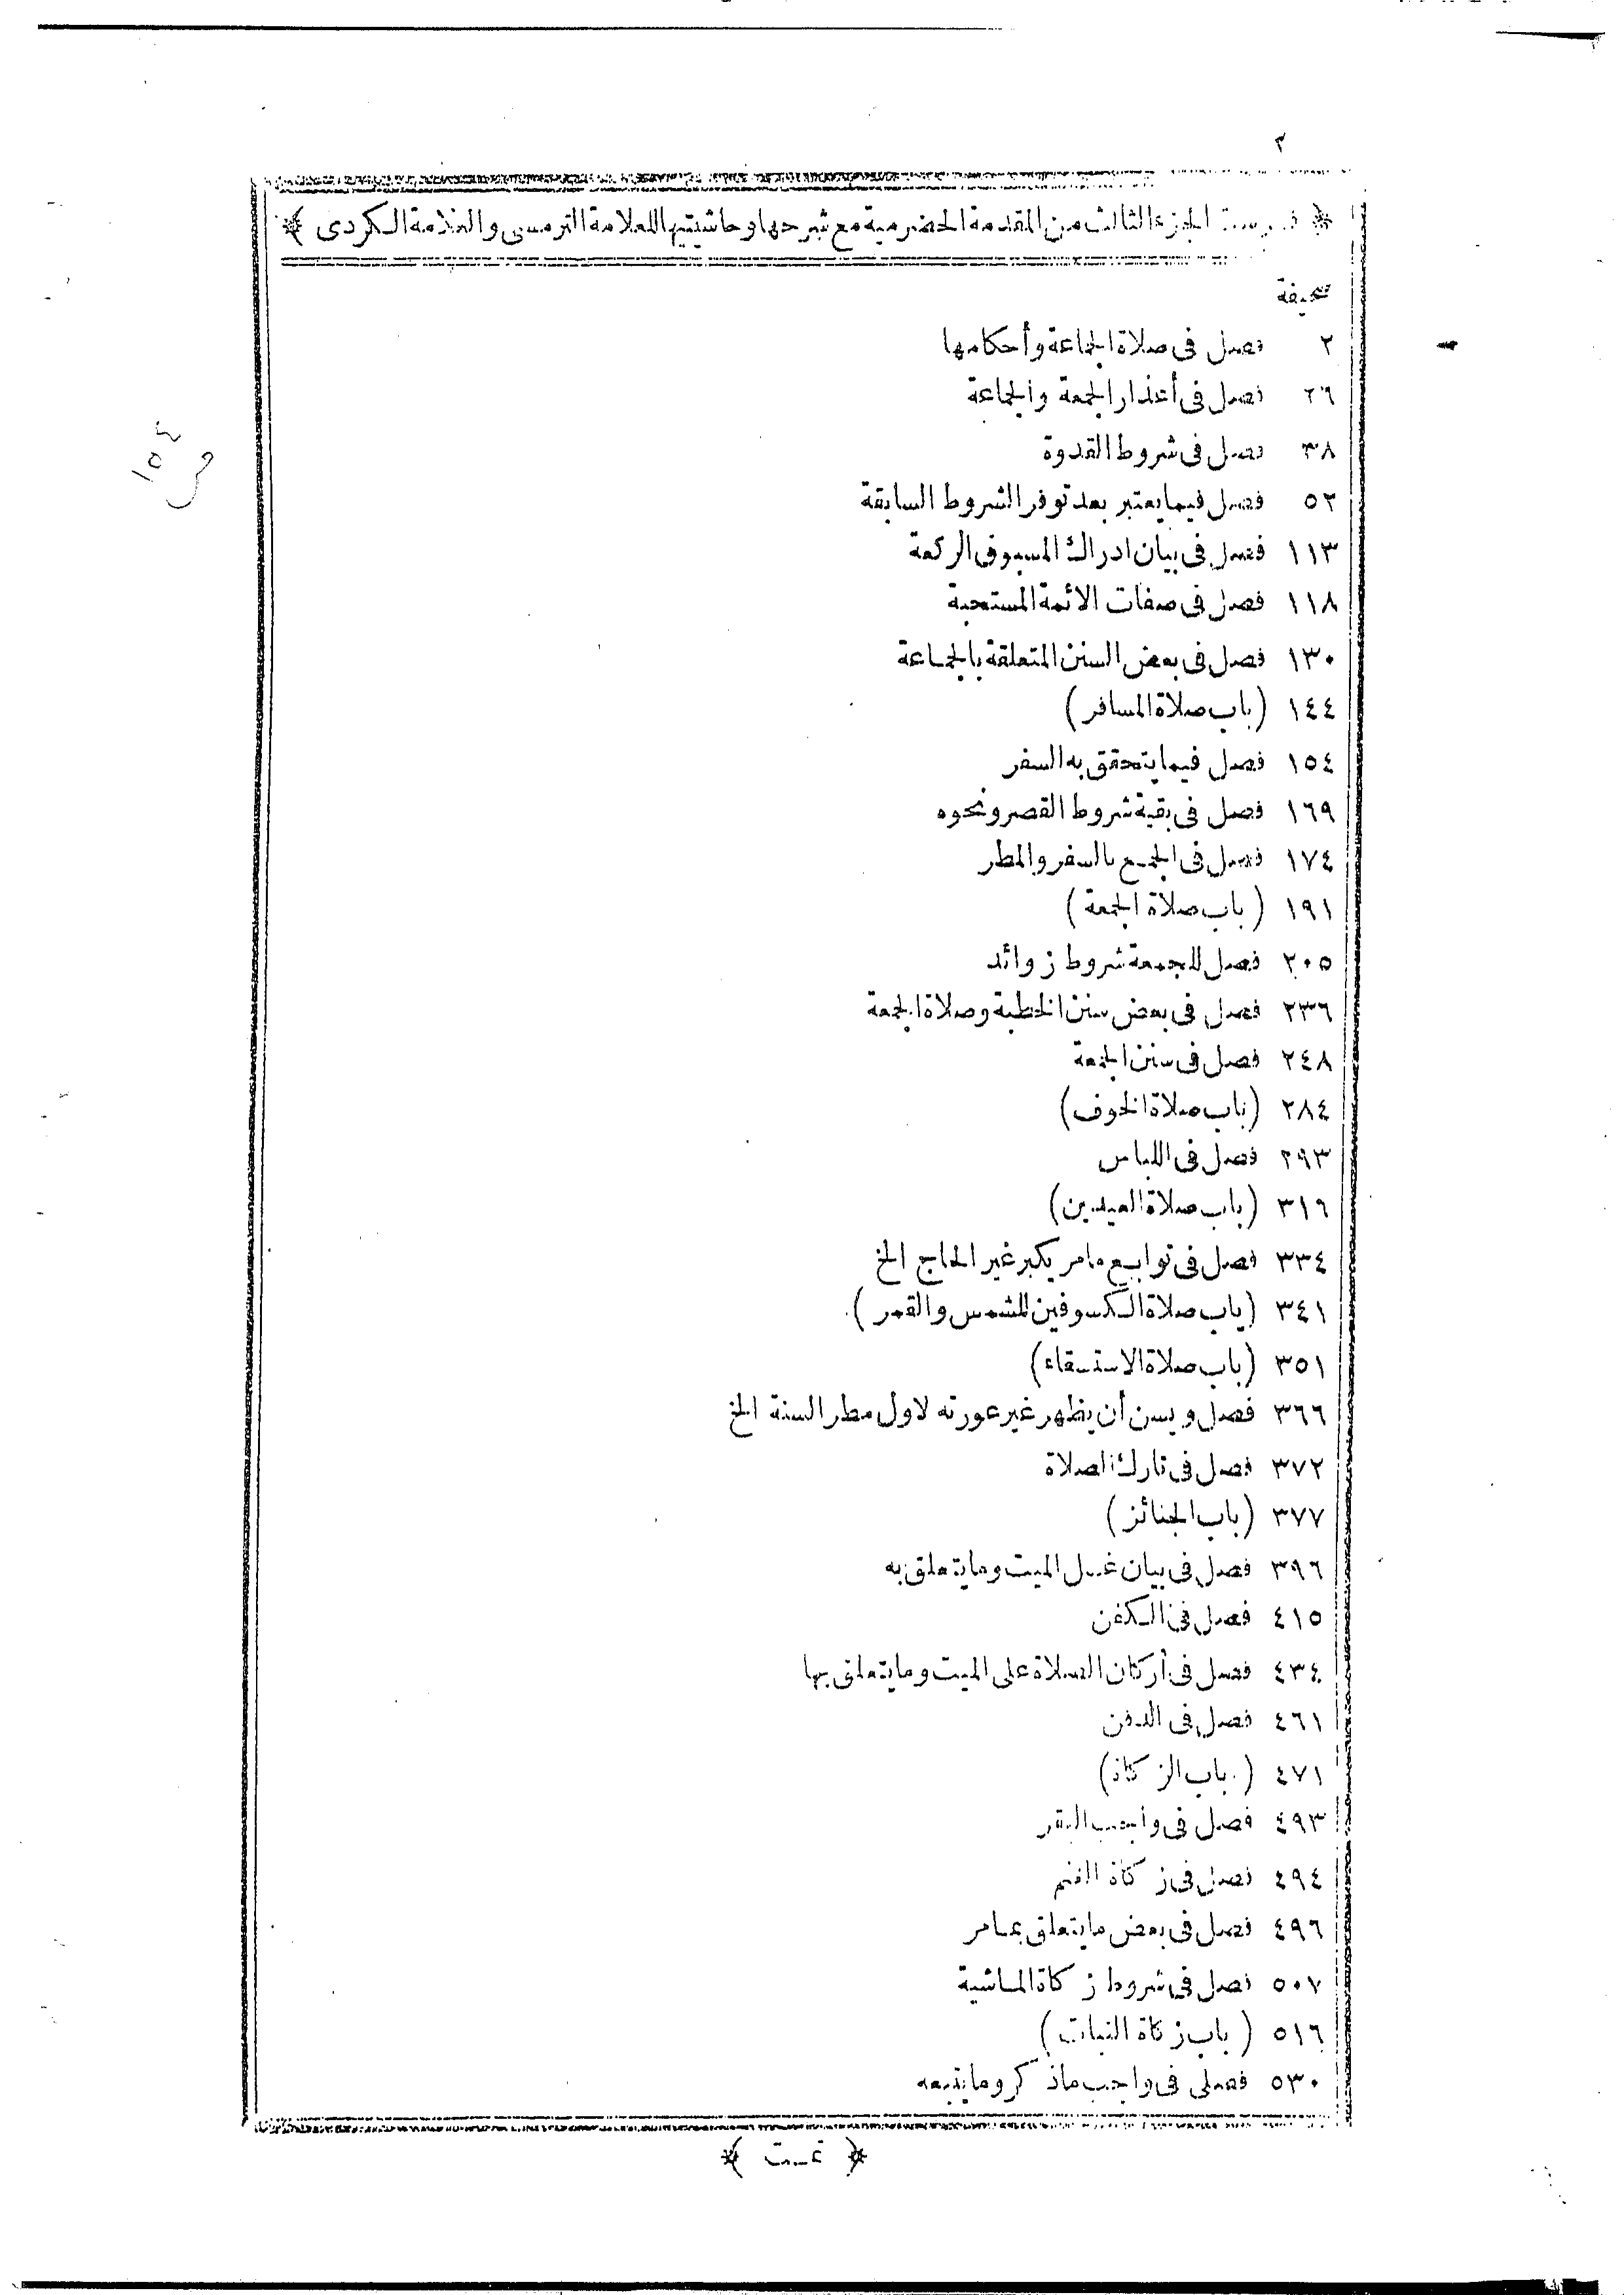 ٣
﴿ فهرست الجزء الثالث من المقدمة الحضرمية مع شرحها وحاشيتيها للعلامة الترمسى والعلامة الكردى ﴾
صحيفة
٢ فصل فى صلاة الجماعة وأحكامها
٢٦ فصل فى أعذار الجمعة والجماعة
٣٨ فصل فى شروط القدوة
٥٢ فصل فيما يعتبر بعد توفر الشروط السابقة
١١٣ فصل فى بيان ادراك المسبوق الركعة
١١٨ فصل فى صفات الائمة المستحبة
١٣٠ فصل فى بعض السنن المتعلقة بالجماعة
١٤٤ (باب صلاة المسافر)
١٥٤ فصل فيما يتحقق به السفر
١٦٩ فصل فى بقية شروط القصر ونحوه
١٧٤ فصل فى الجمع بالسفر والمطر
١٩١ (باب صلاة الجمعة)
٢٠٥ فصل للجمعة شروط زوائد
٢٣٦ فصل فى بعض سنن الخطبة وصلاة الجمعة
٢٤٨ فصل فى سنن الجمعة
٢٨٤ (باب صلاة الخوف)
٢٩٣ فصل فى اللباس
٣١٦ (باب صلاة العيدين)
٣٣٤ فصل فى توابع مامر يكبر غير الحاج الخ
٣٤١ (باب صلاة الكسوفين للشمس والقمر)
٣٥١ (باب صلاة الاستسقاء)
٣٦٦ فصل ويسن أن يظهر غير عورته لاول مطر السنة الخ
٣٧٢ فصل فى تارك الصلاة
٣٧٧ (باب الجنائز)
٣٩٦ فصل فى بيان غسل الميت وما يتعلق به
٤١٥ فصل فى الكفن
٤٣٤ فصل فى أركان الصلاة على الميت وما يتعلق بها
٤٦١ فصل فى الدفن
٤٧١ (باب الزكاة)
٤٩٣ فصل فى واجب البقر
٤٩٤ فصل فى زكاة الغنم
٤٩٦ فصل فى بعض ما يتعلق بمامر
٥٠٧ فصل فى شروط زكاة الماشية
٥١٦ (باب زكاة النبات)
٥٣٠ فصل فى واجب ماذكر وما يتبعه
﴿ تمت ﴾
ص ١٥٤